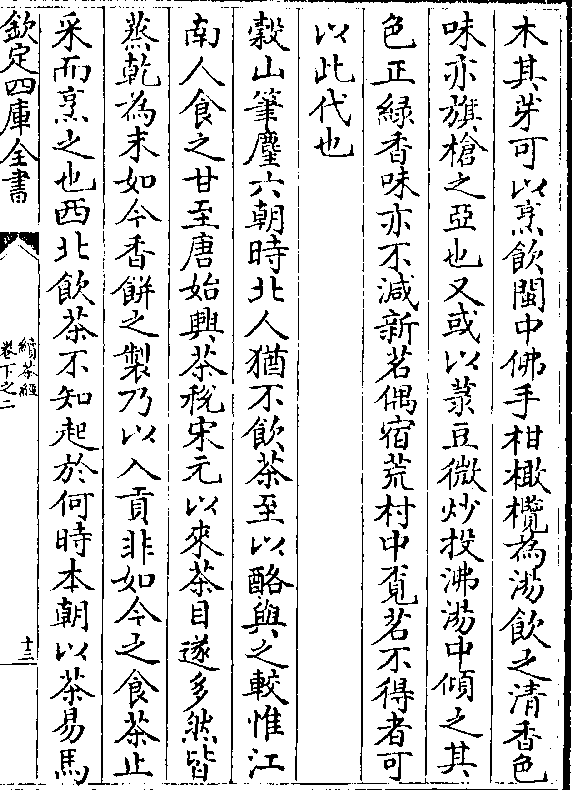 木其芽可以烹飲閩中佛手柑橄欖為湯飲之清香色
味亦旗槍之亞也又或以菉豆微炒投沸湯中傾之其
色正緑香味亦不減新茗偶宿荒村中覓茗不得者可
以此代也
穀山筆麈六朝時北人猶不飲茶至以酪與之較惟江
南人食之甘至唐始興茶税宋元以來茶目遂多然皆
蒸乾為末如今香餅之製乃以入貢非如今之食茶止
采而烹之也西北飲茶不知起於何時本朝以茶易馬
欽定四庫全書
續茶經
卷下之二
十三